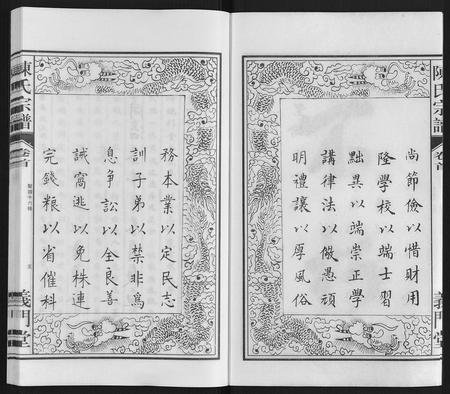 陳氏宗譜
卷首
義門堂
尚節儉以惜財用
隆學校以端士習
黜異以端崇正學
講律法以儆愚頑
明禮讓以厚風俗
務本業以定民志
訓子弟以禁非為
息爭訟以全良善
誡窩逃以免株連
完錢粮以省催科
陳氏宗譜
卷首
聖諭十六條
五
義門堂